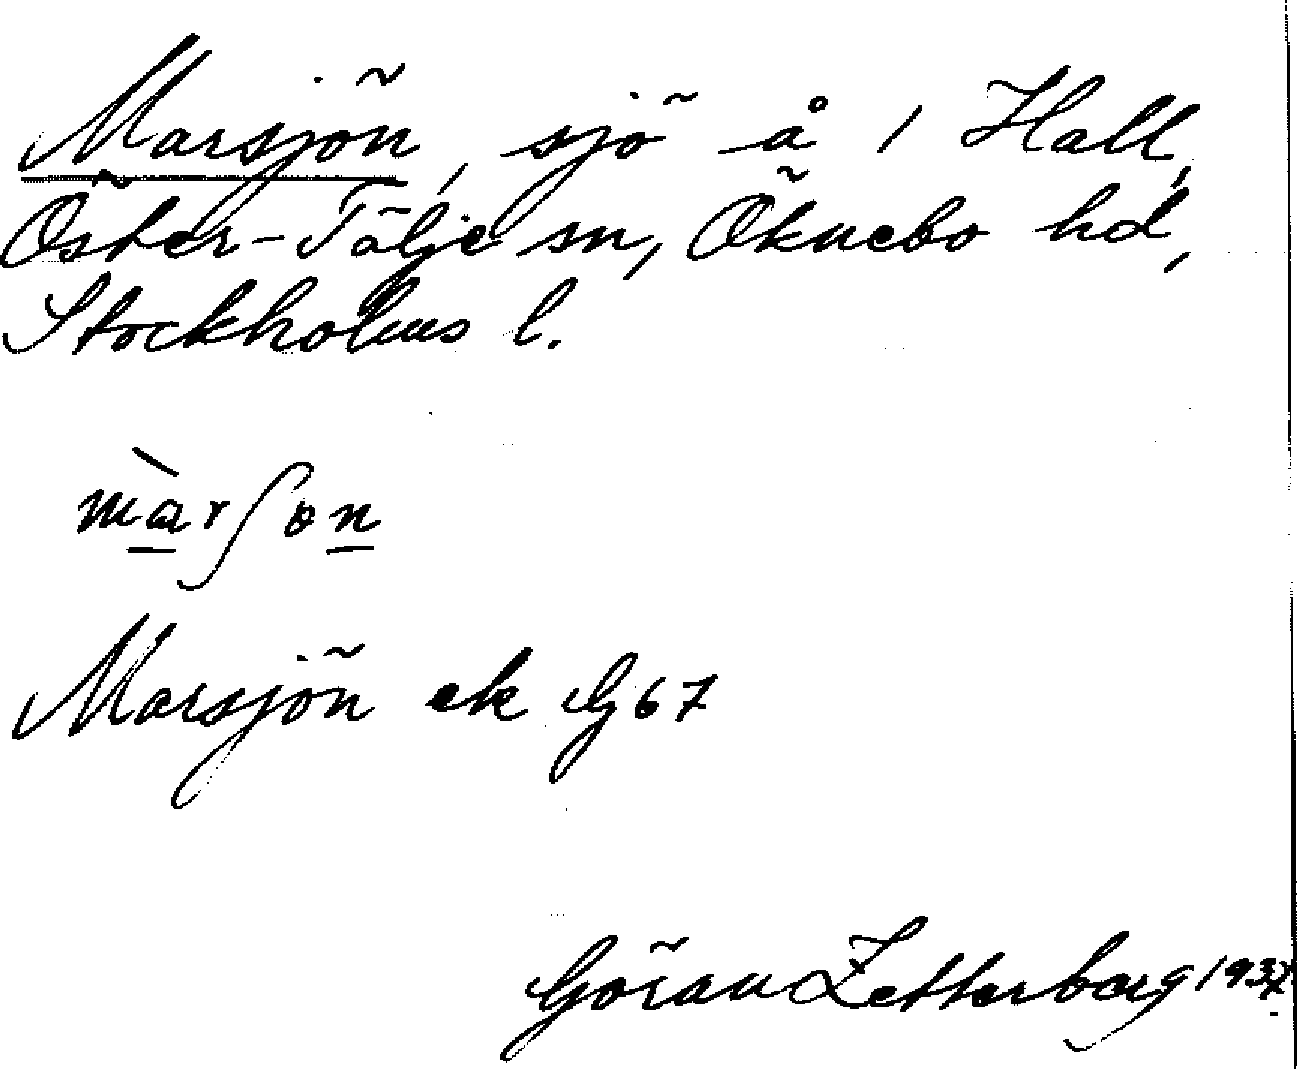 Marsjön, sjö å 1 Hall,
Öster-Tälje sn, Öknebo hd,
Stockholms l.
màrʃɵn
Marsjön ek G 67
Göran Zetterberg 1937